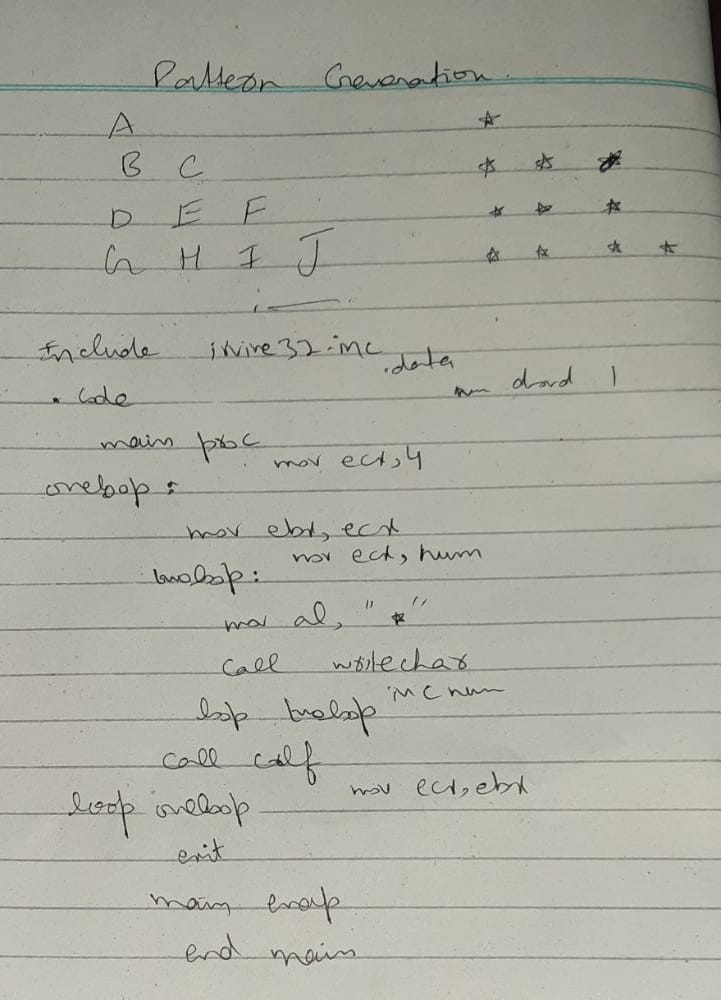 Pattern Generation.
A *
B C * *
D E F * * *
G H I J * * * *
Include irvine32.inc
.data
.code num dword 1
main proc
mov ecx,4
oneloop:
mov ebx, ecx
mov ecx, num
twoloop:
mov al, "*"
call writechar
loop twoloop
inc num
call crlf
mov ecx, ebx
loop oneloop
exit
main endp
end main